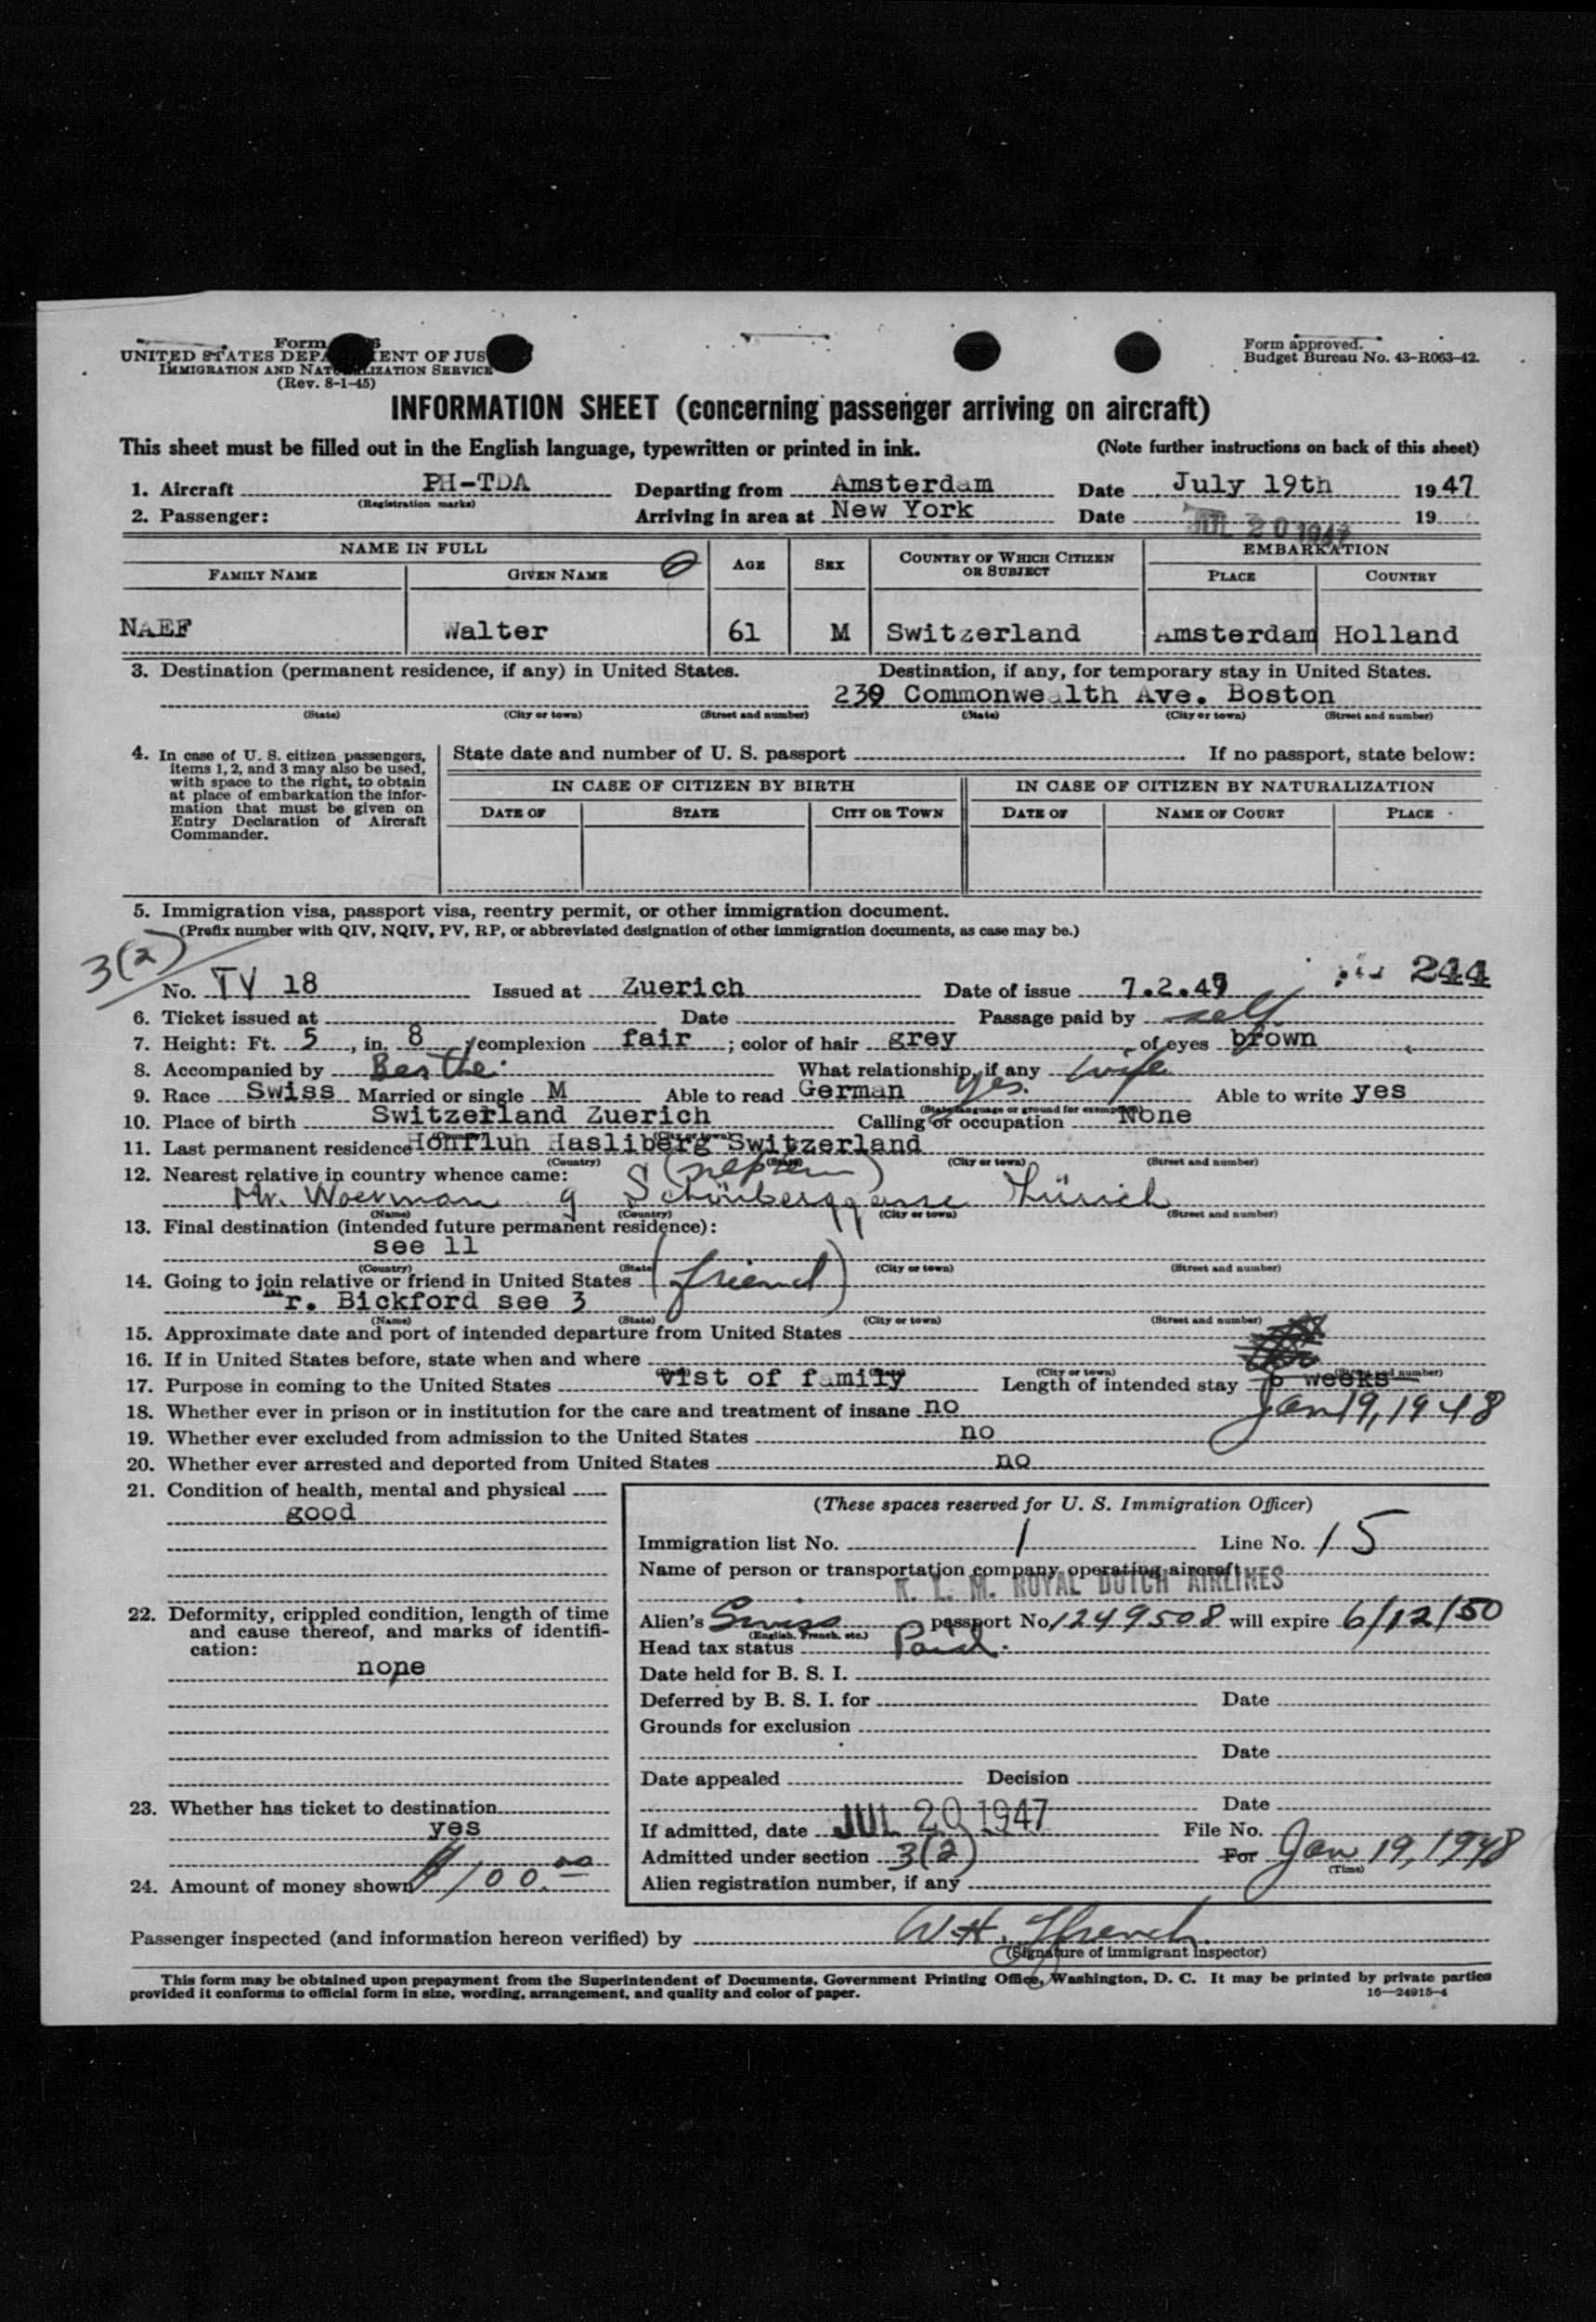 Form
UNITED STATES DEPA ENT OF JUS
IMMIGRATION AND NAT LIZATION SERVICE
(Rev. 8-1-45)
Form approved.
Budget Bureau No. 43-R063-42.
INFORMATION SHEET (concerning passenger arriving on aircraft)
This sheet must be filled out in the English language, typewritten or printed in ink. (Note further instructions on back of this sheet)
1. Aircraft PH-TDA Departing from Amsterdam Date July 19th 1947
(Registration marks)
2. Passenger: Arriving in area at New York Date JUL 20 1947 19
NAME IN FULL AGE SEX COUNTRY OF WHICH CITIZEN OR SUBJECT EMBARKATION
FAMILY NAME GIVEN NAME PLACE COUNTRY
NAEF Walter 61 M Switzerland Amsterdam Holland
3. Destination (permanent residence, if any) in United States. Destination, if any, for temporary stay in United States.
239 Commonwealth Ave. Boston
(State) (City or town) (Street and number) (State) (City or town) (Street and number)
4. In case of U. S. citizen passengers, items 1, 2, and 3 may also be used, with space to the right, to obtain at place of embarkation the information that must be given on Entry Declaration of Aircraft Commander.
State date and number of U. S. passport If no passport, state below:
IN CASE OF CITIZEN BY BIRTH IN CASE OF CITIZEN BY NATURALIZATION
DATE OF STATE CITY OR TOWN DATE OF NAME OF COURT PLACE
5. Immigration visa, passport visa, reentry permit, or other immigration document.
(Prefix number with QIV, NQIV, PV, RP, or abbreviated designation of other immigration documents, as case may be.)
3(2)
244
No. TV 18 Issued at Zuerich Date of issue 7.2.47
6. Ticket issued at Date Passage paid by self
7. Height: Ft. 5, in. 8; complexion fair; color of hair grey, of eyes brown
8. Accompanied by Berthe What relationship, if any wife
9. Race Swiss Married or single M Able to read German yes. Able to write yes
(State language or ground for exemption)
10. Place of birth Switzerland Zuerich Calling or occupation None
11. Last permanent residence Hohfluh Hasliberg Switzerland
(Country) (State) (City or town) (Street and number)
12. Nearest relative in country whence came: (nephew)
Mr. Woerman 9 Schönberggasse Zürich
(Name) (Country) (City or town) (Street and number)
13. Final destination (intended future permanent residence):
see 11
(Country) (State) (City or town) (Street and number)
14. Going to join relative or friend in United States (friend)
r. Bickford see 3
(Name) (State) (City or town) (Street and number)
15. Approximate date and port of intended departure from United States
16. If in United States before, state when and where
(City or town) (Street and number)
17. Purpose in coming to the United States vist of family Length of intended stay 6 weeks
Jan 19, 1948
18. Whether ever in prison or in institution for the care and treatment of insane no
19. Whether ever excluded from admission to the United States no
20. Whether ever arrested and deported from United States no
21. Condition of health, mental and physical
good
22. Deformity, crippled condition, length of time and cause thereof, and marks of identification:
none
23. Whether has ticket to destination
yes
24. Amount of money shown $100.00
(These spaces reserved for U. S. Immigration Officer)
Immigration list No. 1 Line No. 15
Name of person or transportation company operating aircraft
K. L. M. ROYAL DUTCH AIRLINES
Alien's Swiss passport No. 1249508 will expire 6/12/50
(English, French, etc.)
Head tax status Paid.
Date held for B. S. I.
Deferred by B. S. I. for Date
Grounds for exclusion
Date
Date appealed Decision
Date
If admitted, date JUL 20 1947 File No.
Admitted under section 3(2) For Jan 19, 1948
(Time)
Alien registration number, if any
Passenger inspected (and information hereon verified) by W. H. French
(Signature of immigrant inspector)
This form may be obtained upon prepayment from the Superintendent of Documents, Government Printing Office, Washington, D. C. It may be printed by private parties
provided it conforms to official form in size, wording, arrangement, and quality and color of paper. 16—24915-4